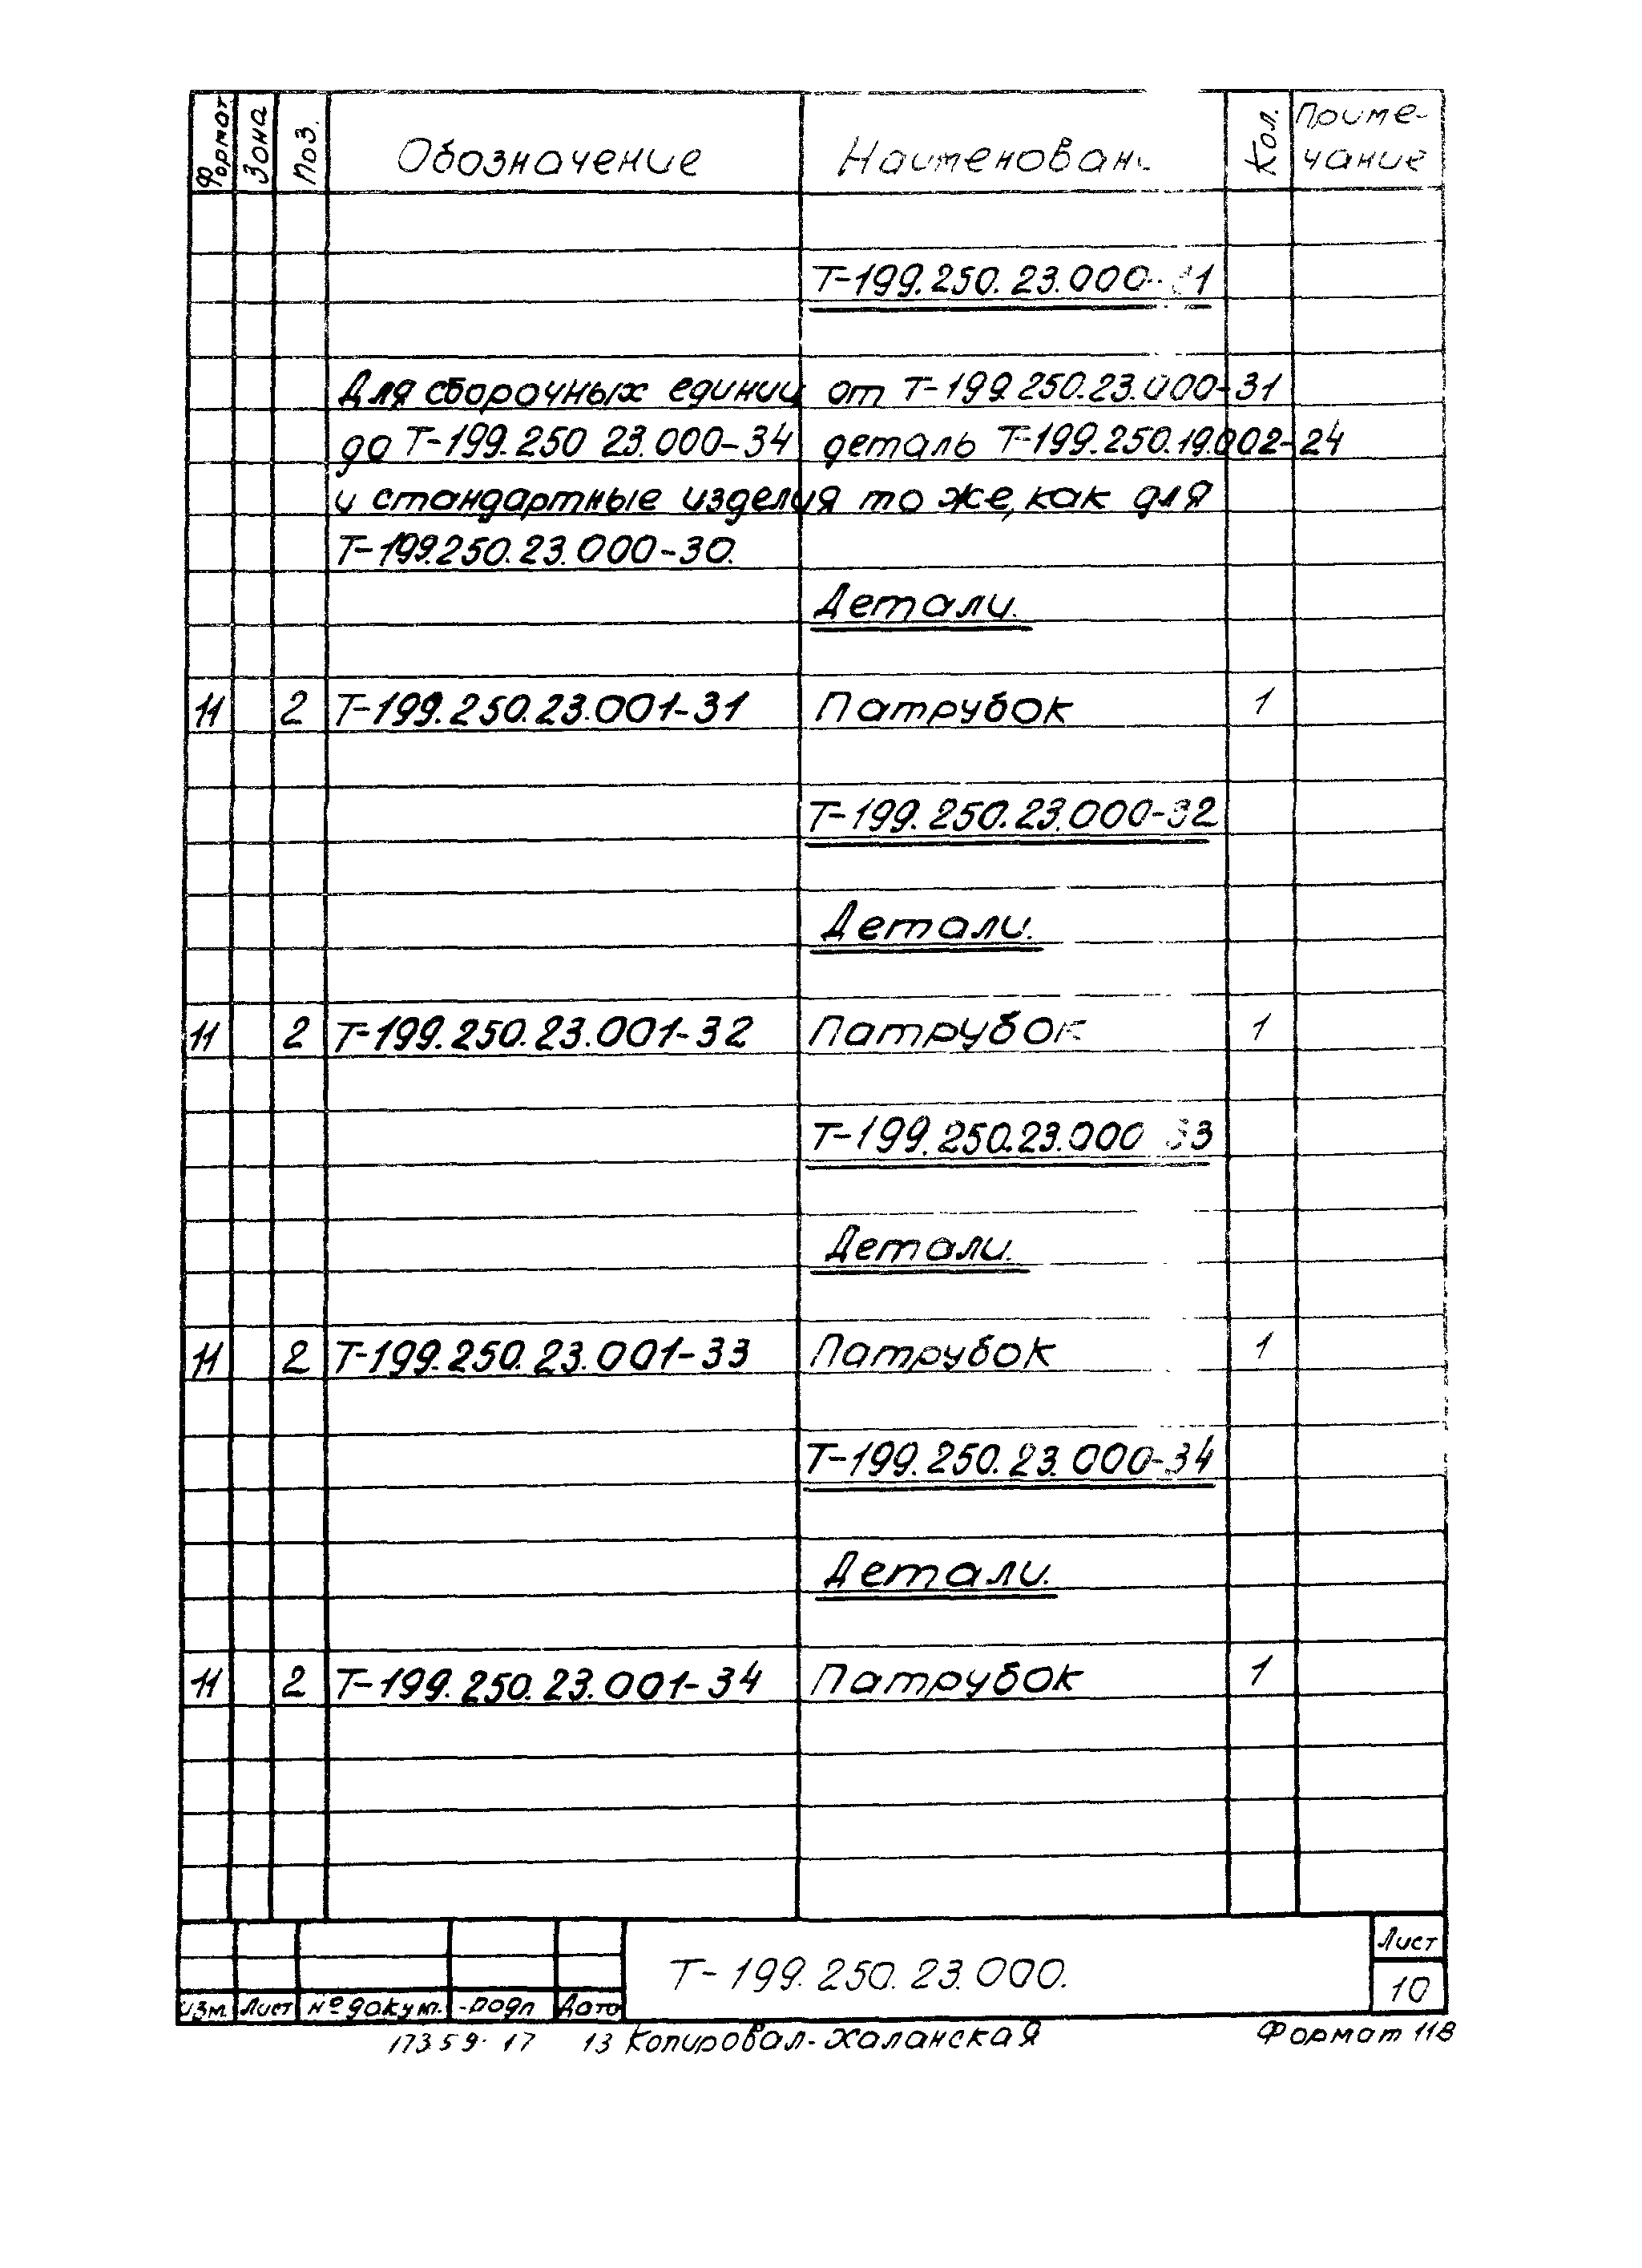 Формат Зона Поз. Обозначение Наименован. Кол. Приме-
чание
Т-199.250.23.000-31
Для сборочных единиц от Т-199.250.23.000-31
до Т-199.250 23.000-34 деталь Т-199.250.19.002-24
и стандартные изделия то же, как для
Т-199.250.23.000-30.
Детали.
11 2 Т-199.250.23.001-31 Патрубок 1
Т-199.250.23.000-32
Детали.
11 2 Т-199.250.23.001-32 Патрубок 1
Т-199.250.23.000 33
Детали.
11 2 Т-199.250.23.001-33 Патрубок 1
Т-199.250.23.000-34
Детали.
11 2 Т-199.250.23.001-34 Патрубок 1
Т-199.250.23.000.
Лист
10
Изм. Лист № докум. Подп Дата
17359-17 13 Копировал-Халанская Формат 11В